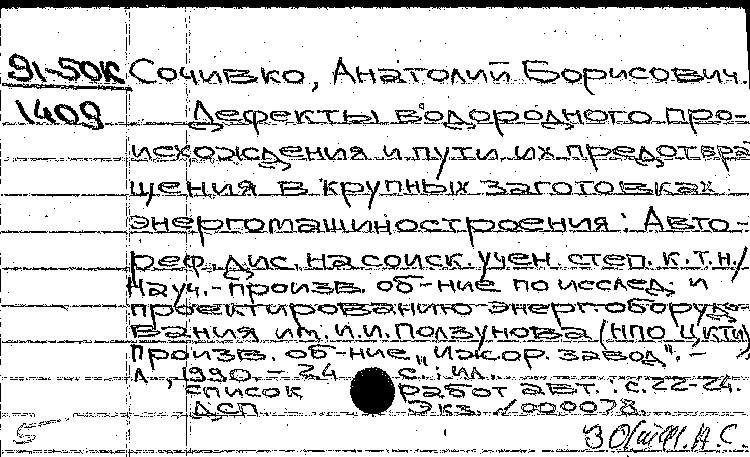 91-50К Сочивко, Анатолий Борисович.
1409 Дефекты водородного про-
исхождения и пути их предотвра
щения в крупных заготовках
энергомашиностроения: Авто-
реф. дис. на соиск. учен. степ. к.т.н./
Науч.-произв. об-ние по исслед. и
проектированию энерг. оборудо-
вания им. И.И. Ползунова (НПО ЦКТИ)
произв. об-ние „Ижор. завод". -
Л., 1990. - 24 с.: ил.
список работ авт.: с. 22-24.
ДСП Экз. №000078.
5